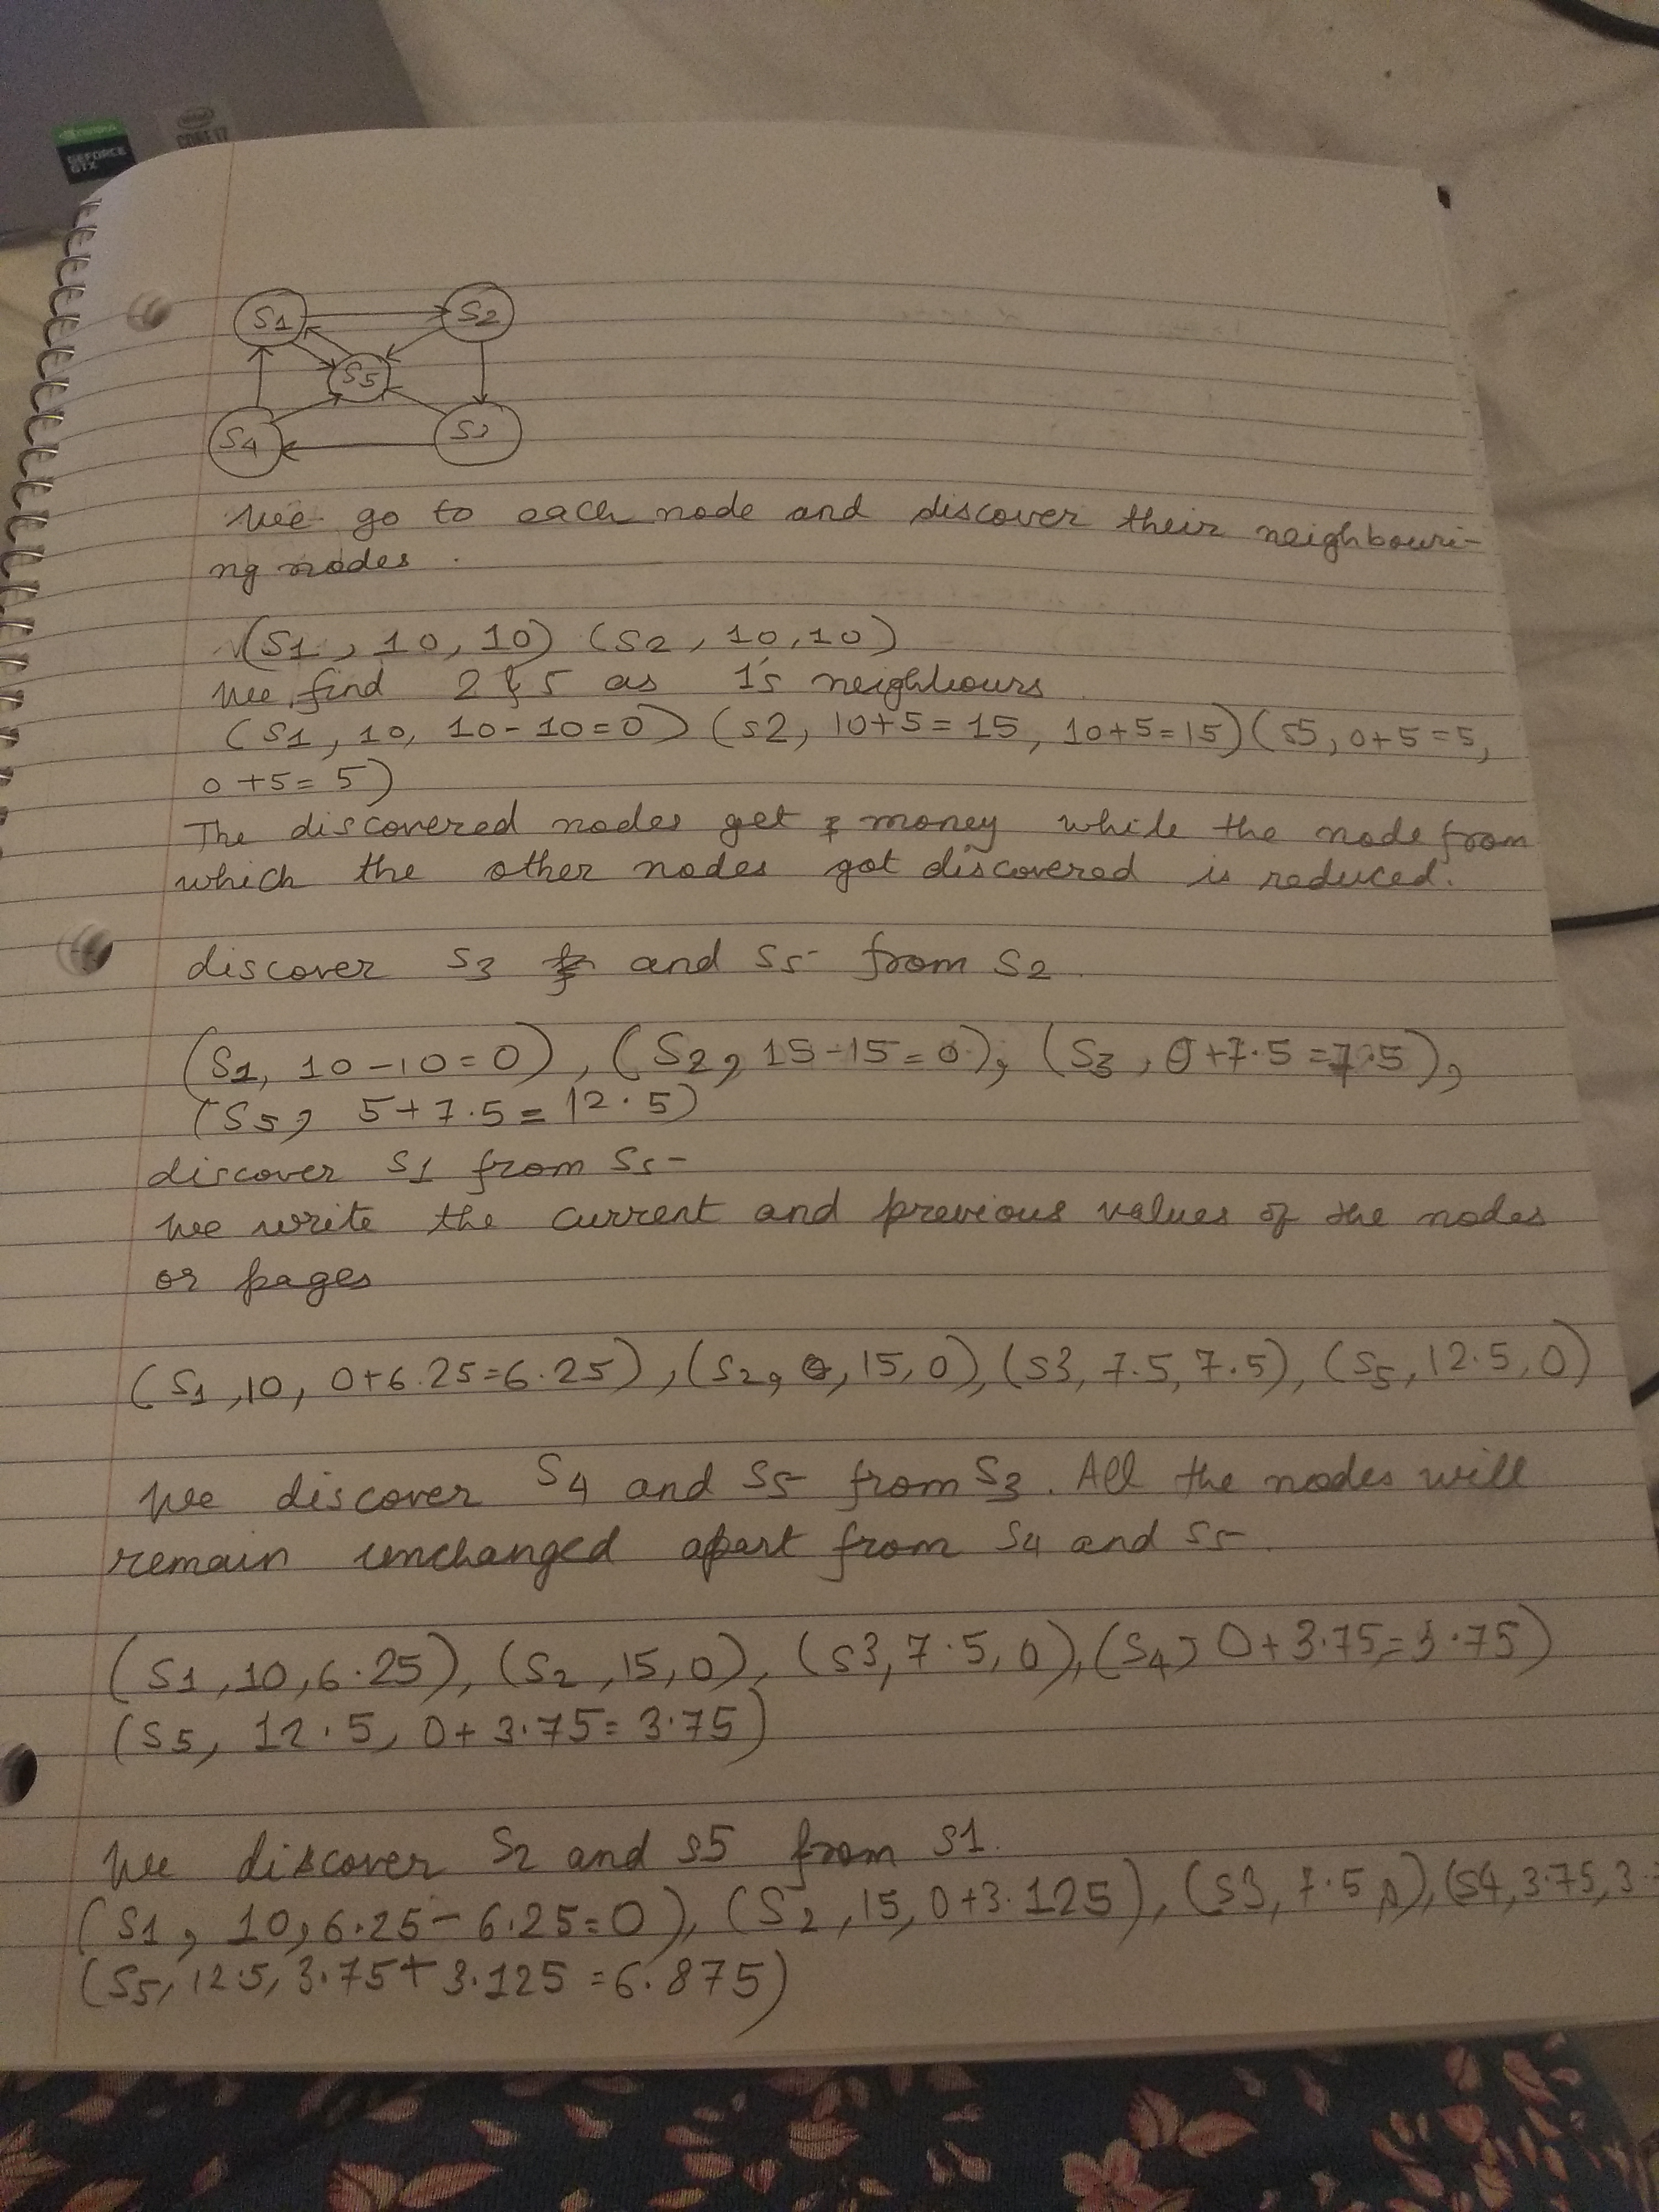 GEFORCE
GTX
intel
CORE i7
S1 S2
S5
S4
We go to each node and discover their neighbouri-
ng nodes.
(S1, 10, 10) (S2, 10, 10)
We find 2 & 5 as 1's neighbours
(S1, 10, 10-10=0) (S2, 10+5=15, 10+5=15) (S5, 0+5=5,
0+5=5)
The discovered nodes get money while the node from
which the other nodes got discovered is reduced.
discover S3 and S5 from S2.
(S1, 10-10=0), (S2, 15-15=0), (S3, 0+7.5=7.5),
(S5, 5+7.5=12.5)
discover S1 from S5
We write the current and previous values of the nodes
or pages
(S1, 10, 0+6.25=6.25), (S2, 15, 0), (S3, 7.5, 7.5), (S5, 12.5, 0)
We discover S4 and S5 from S3. All the nodes will
remain unchanged apart from S4 and S5.
(S1, 10, 6.25), (S2, 15, 0), (S3, 7.5, 0), (S4, 0+3.75=3.75)
(S5, 12.5, 0+3.75=3.75)
We discover S2 and S5 from S1.
(S1, 10, 6.25-6.25=0), (S2, 15, 0+3.125), (S3, 7.5, ), (S4, 3.75, 3.
(S5, 12.5, 3.75+3.125=6.875)